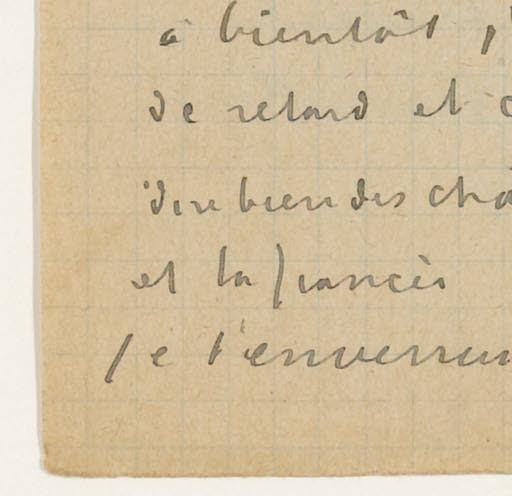 à bientôt,
de retard et
dire bien des cho
et ta francès
je t'enverrai